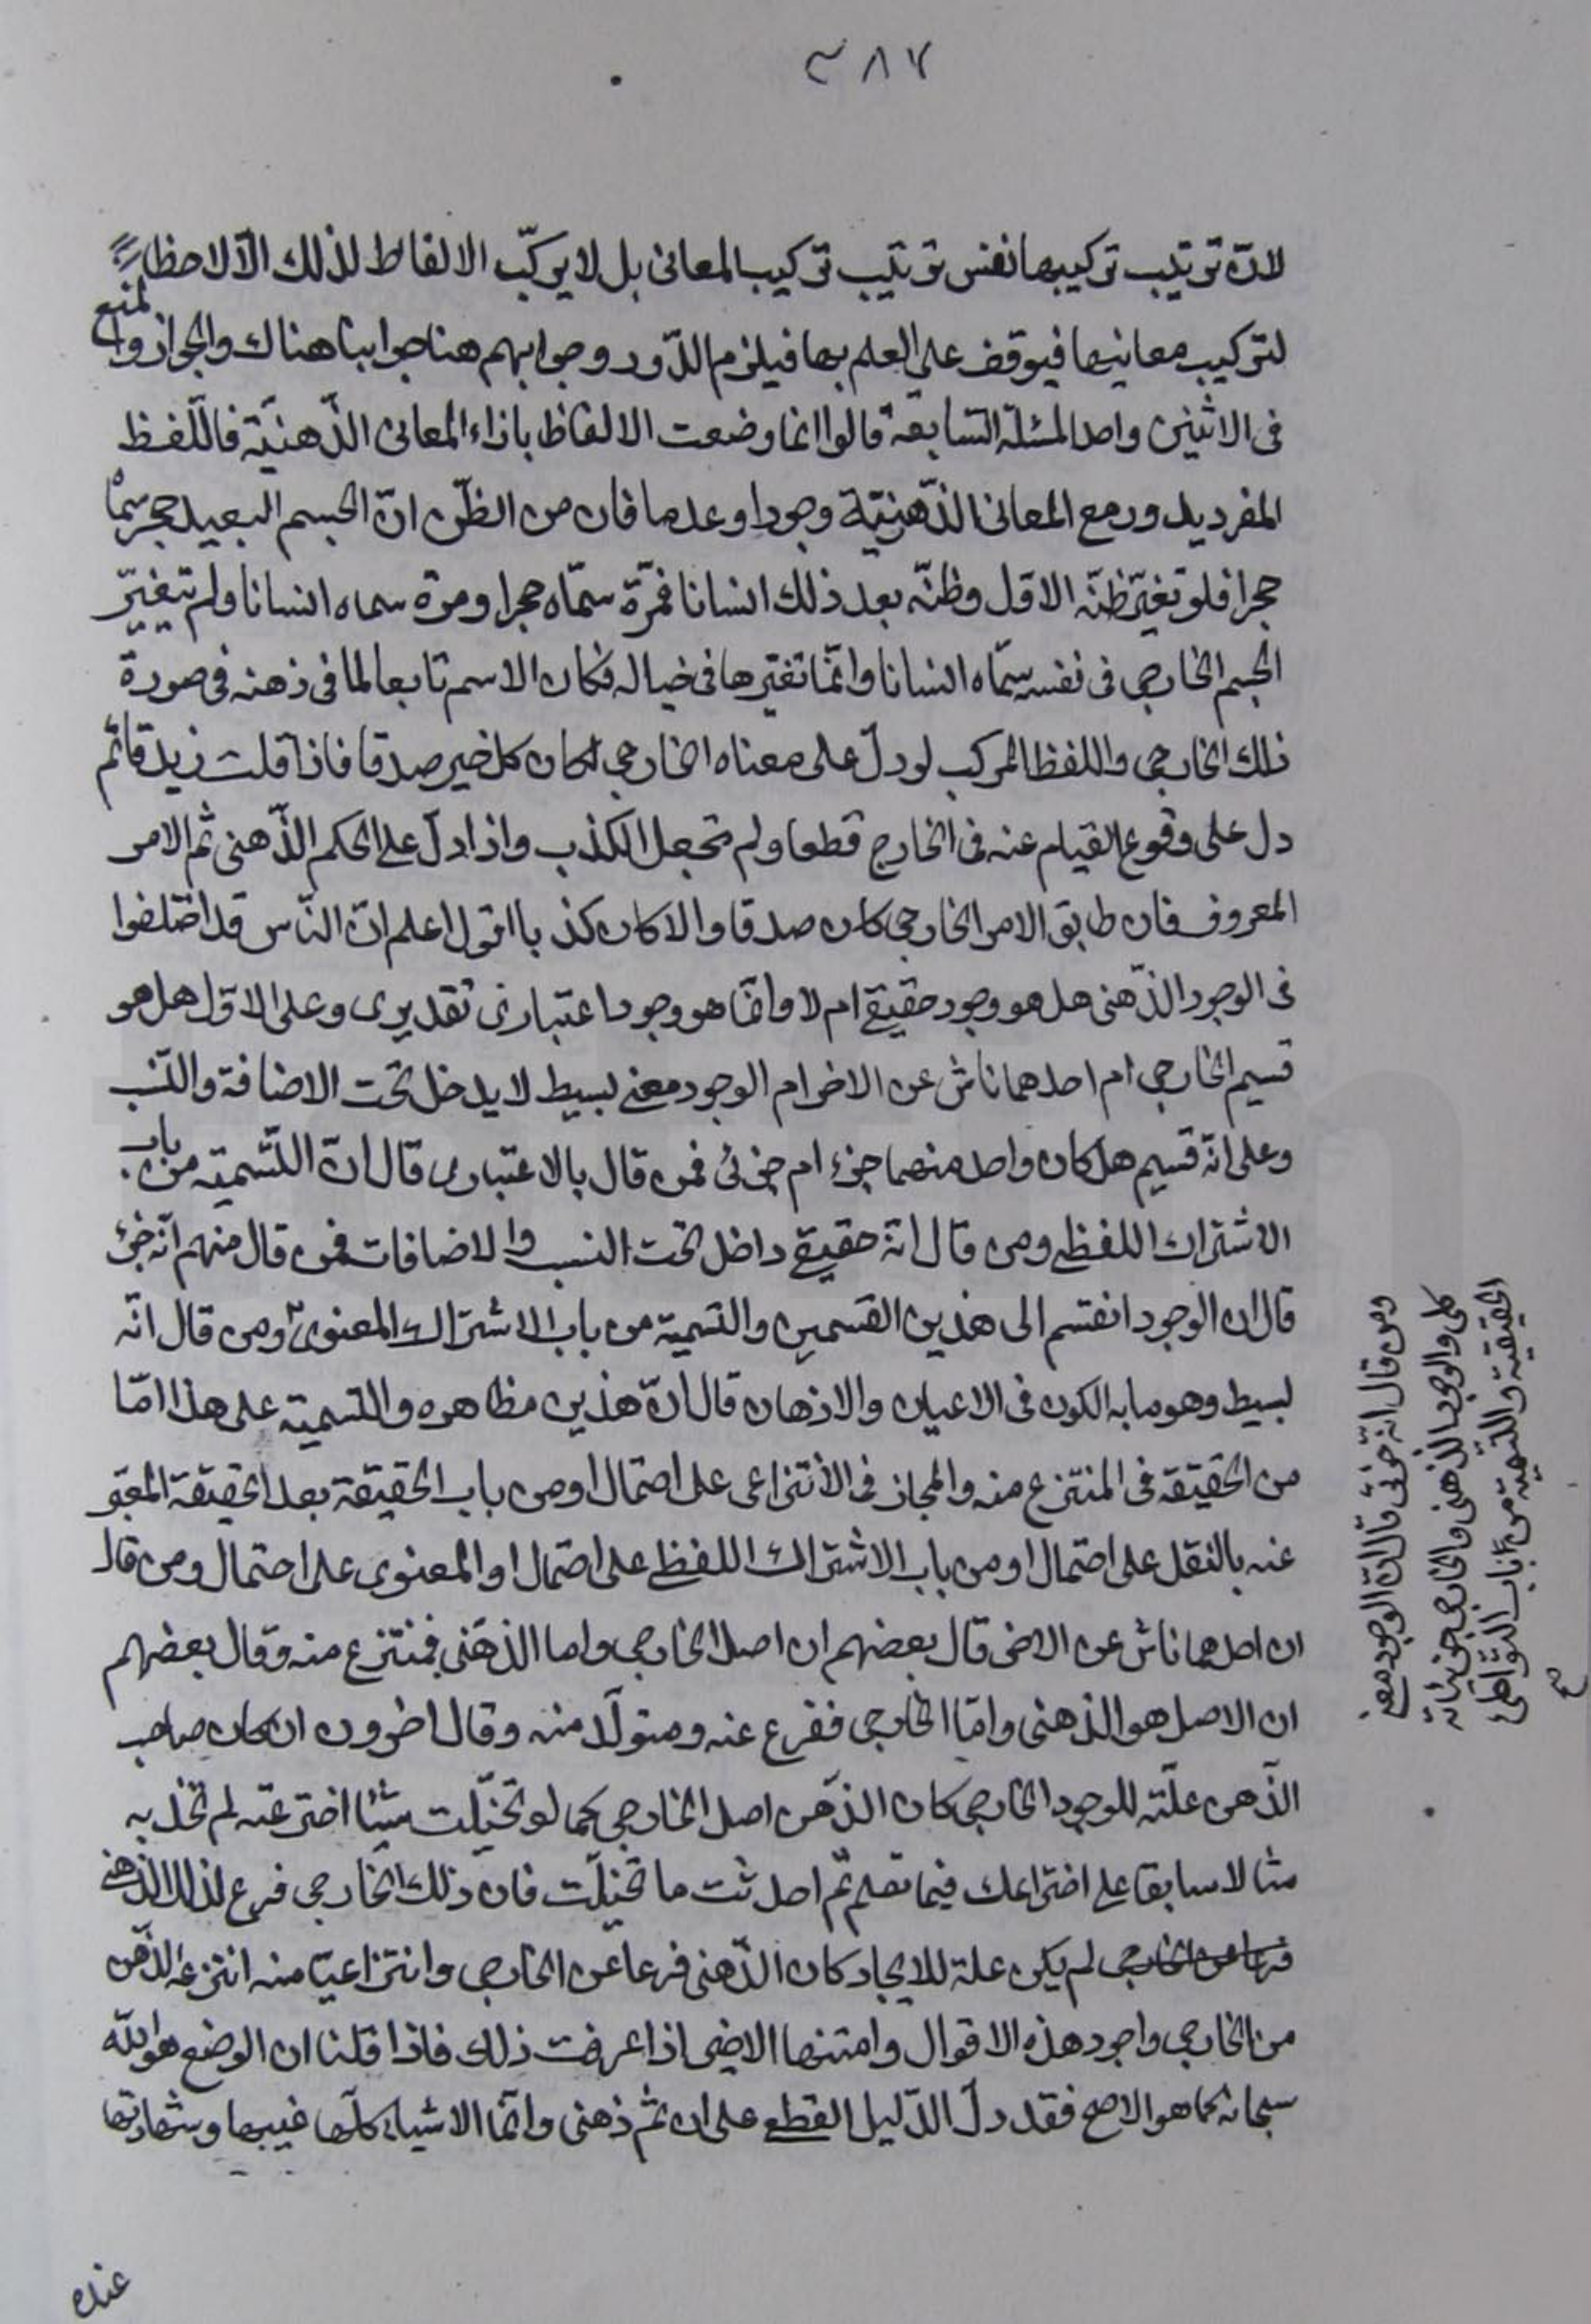 ٣٨٧
لان ترتيب تركيبها نفس ترتيب تركيب المعانى بل لا يركّب الالفاظ لذلك الّا لاحظا
لتركيب معانيها فيوقف على العلم بها فيلزم الدّور وجوابهم هنا جوابنا هناك والجواز والمنع
فى الاثنين واحد المسئلة السّابعة قالوا انما وضعت الالفاظ بازاء المعانى الذّهنيّة فاللّفظ
المفرد يدور مع المعانى الذّهنيّة وجودا وعدما فان من الظنّ انّ الجسم البعيد حجر سمّاه
حجرا فلو تغيّر ظنّه الاوّل وظنّه بعد ذلك انسانا فمرّة سمّاه حجرا ومرة سماه انسانا ولم تتغيّر
الجسم الخارجى فى نفسه سمّاه انسانا وانّما تغيّرها فى خياله فكان الاسم تابعا لما فى ذهنه فى صورة
ذلك الخارجى واللفظ المركب لو دلّ على معناه الخارجى لكان كل خبر صدقا فاذا قلت زيد قائم
دل على وقوع القيام عنه فى الخارج قطعا ولم تجعل الكذب واذا دلّ على الحكم الذّهنى ثم الامر
المعروف فان طابق الامر الخارجى كان صدقا والا كان كذبا اقول اعلم انّ النّاس قد اختلفوا
فى الوجود الذّهنى هل هو وجود حقيقى ام لا وانّما هو وجود اعتبارى تقديرى وعلى الاوّل هل هو
قسيم الخارجى ام احدهما ناش عن الاخر ام الوجود معنى بسيط لا يدخل تحت الاضافة والنّسب
وعلى انّه قسيم هل كان واحد منهما جزء ام جزئى فمن قال بالاعتبارى قال انّ التّسمية من باب
الاشتراك اللفظى ومن قال انّه حقيقى داخل تحت النسب والاضافات فمن قال منهم انّه جزء
قال ان الوجود انقسم الى هذين القسمين والتسمية من باب الاشتراك المعنوى ومن قال انّه
بسيط وهو ما به الكون فى الاعيان والاذهان قال انّ هذين مظاهره والتسمية على هذا امّا
من الحقيقة فى المنتزع منه والمجاز فى الأنتزاعى على احتمال او من باب الحقيقة بعد الحقيقة المعبّر
عنه بالنقل على احتمال او من باب الاشتراك اللفظى على احتمال او المعنوى على احتمال ومن قال
ان احدهما ناش عن الاخر قال بعضهم ان اصل الخارجى واما الذهنى فمنتزع منه وقال بعضهم
ان الاصل هو الذهنى وامّا الخارجى ففرع عنه ومتولّد منه وقال اخرون ان كان صاحب
الذّهن علّته للوجود الخارجى كان الذّهن اصل الخارجى كما لو تخيّلت شيئا اخترعته لم تخذ به
مثالا سابقا على اختراعك فيما تعلم ثم احدثت ما تخيّلت فان ذلك الخارجى فرع لذلك الذهنى
لم يكن علة للايجاد كان الذّهنى فرعا عن الخارجى وانتزاعيّا منه انتزعه الذّهن
من الخارجى واجود هذه الاقوال وامتنها الاخير اذا عرفت ذلك فاذا قلنا ان الوضع هو الله
سبحانه كما هو الاصح فقد دلّ الدّليل القطعى على ان ثم ذهنى وانّما الاشياء كلّها غيبها وشهادتها
عنده
ومن قال انّه جزئى قال انّ الوجود معنى
كلى والوجود الذهنى والخارجى جزئيّاته
الحقيقيّة والتّسمية من باب التّواطى
صح